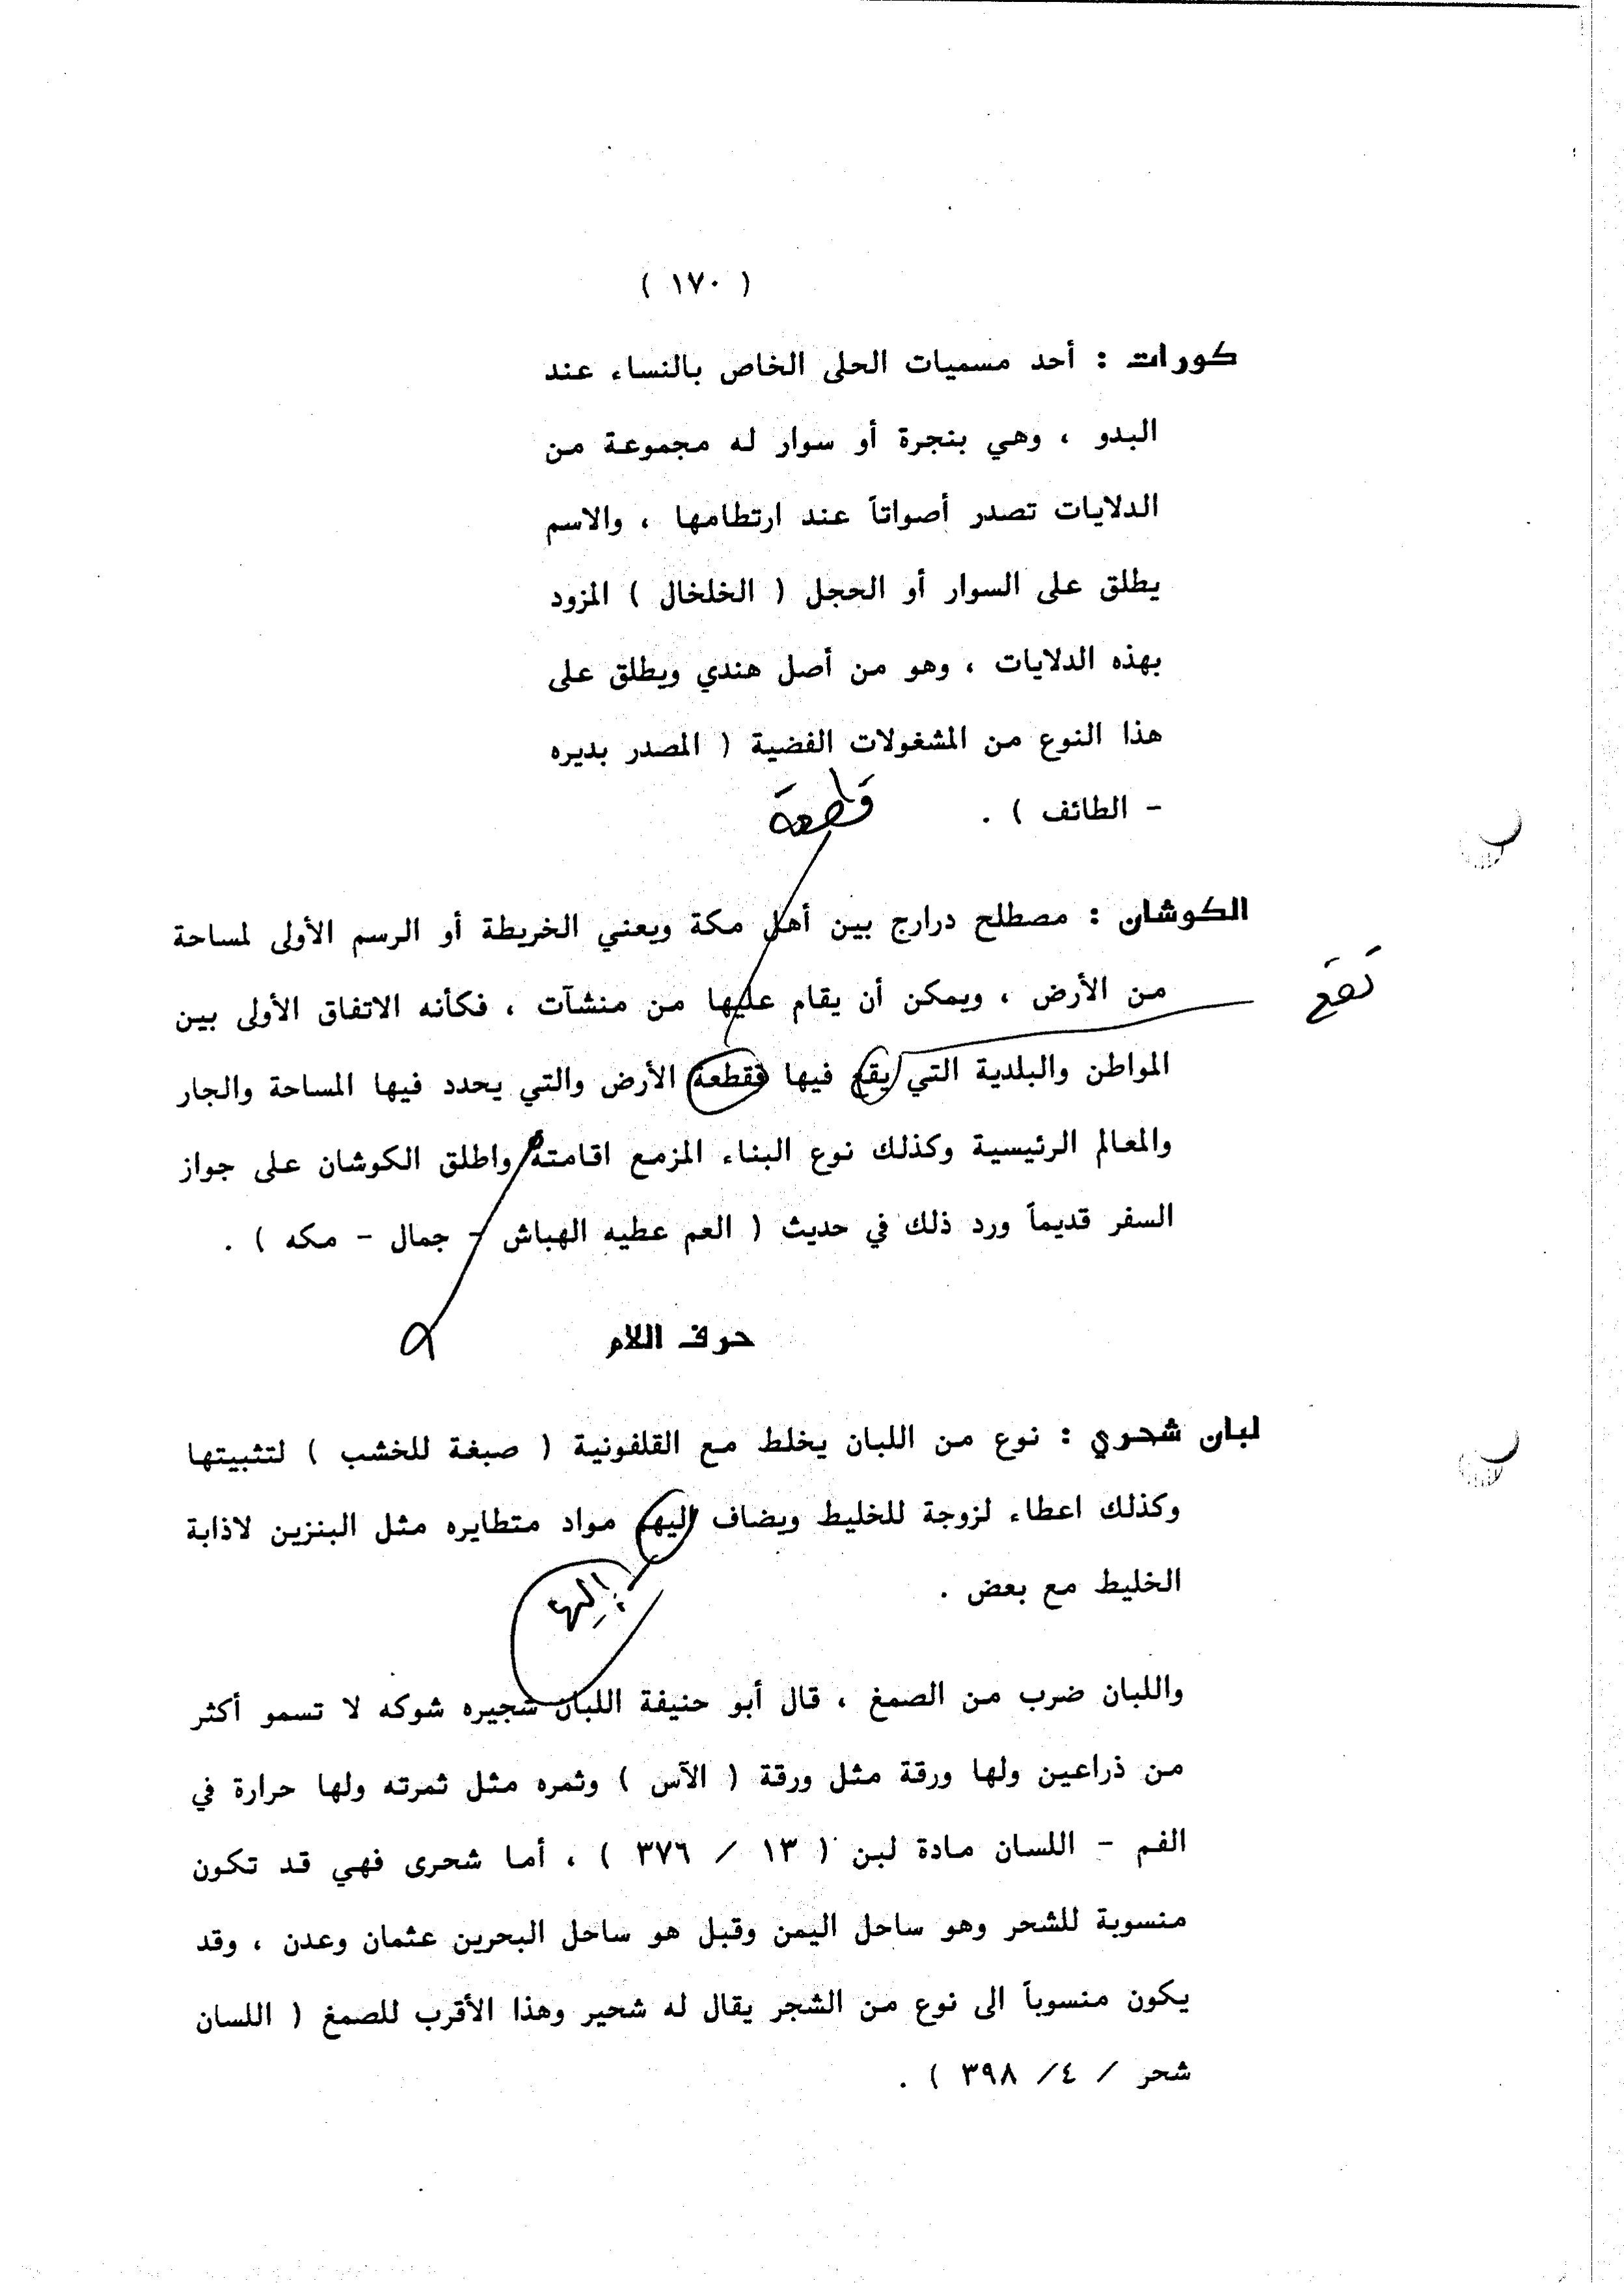 ( ١٧٠ )
كورات : أحد مسميات الحلى الخاص بالنساء عند
البدو ، وهي بنجرة أو سوار له مجموعة من
الدلايات تصدر أصواتاً عند ارتطامها ، والاسم
يطلق على السوار أو الحجل ( الخلخال ) المزود
بهذه الدلايات ، وهو من أصل هندي ويطلق على
هذا النوع من المشغولات الفضية ( المصدر بديره
- الطائف ) .
قطعة
الكوشان : مصطلح درارج بين أهل مكة ويعني الخريطة أو الرسم الأولى لمساحة
من الأرض ، ويمكن أن يقام عليها من منشآت ، فكأنه الاتفاق الأولى بين
تقع
المواطن والبلدية التي يقع فيها فقطعة الأرض والتي يحدد فيها المساحة والجار
والمعالم الرئيسية وكذلك نوع البناء المزمع اقامته واطلق الكوشان على جواز
السفر قديماً ورد ذلك في حديث ( العم عطيه الهباش - جمال - مكه ) .
حرف اللام
لبان شحري : نوع من اللبان يخلط مع القلفونية ( صبغة للخشب ) لتثبيتها
وكذلك اعطاء لزوجة للخليط ويضاف إليه مواد متطايره مثل البنزين لاذابة
إليها
الخليط مع بعض .
واللبان ضرب من الصمغ ، قال أبو حنيفة اللبان شجيره شوكه لا تسمو أكثر
من ذراعين ولها ورقة مثل ورقة ( الآس ) وثمره مثل ثمرته ولها حرارة في
الفم - اللسان مادة لبن ( ١٣ / ٣٧٦ ) ، أما شحرى فهي قد تكون
منسوبة للشحر وهو ساحل اليمن وقبل هو ساحل البحرين عثمان وعدن ، وقد
يكون منسوباً الى نوع من الشجر يقال له شحير وهذا الأقرب للصمغ ( اللسان
شحر / ٤/ ٣٩٨ ) .